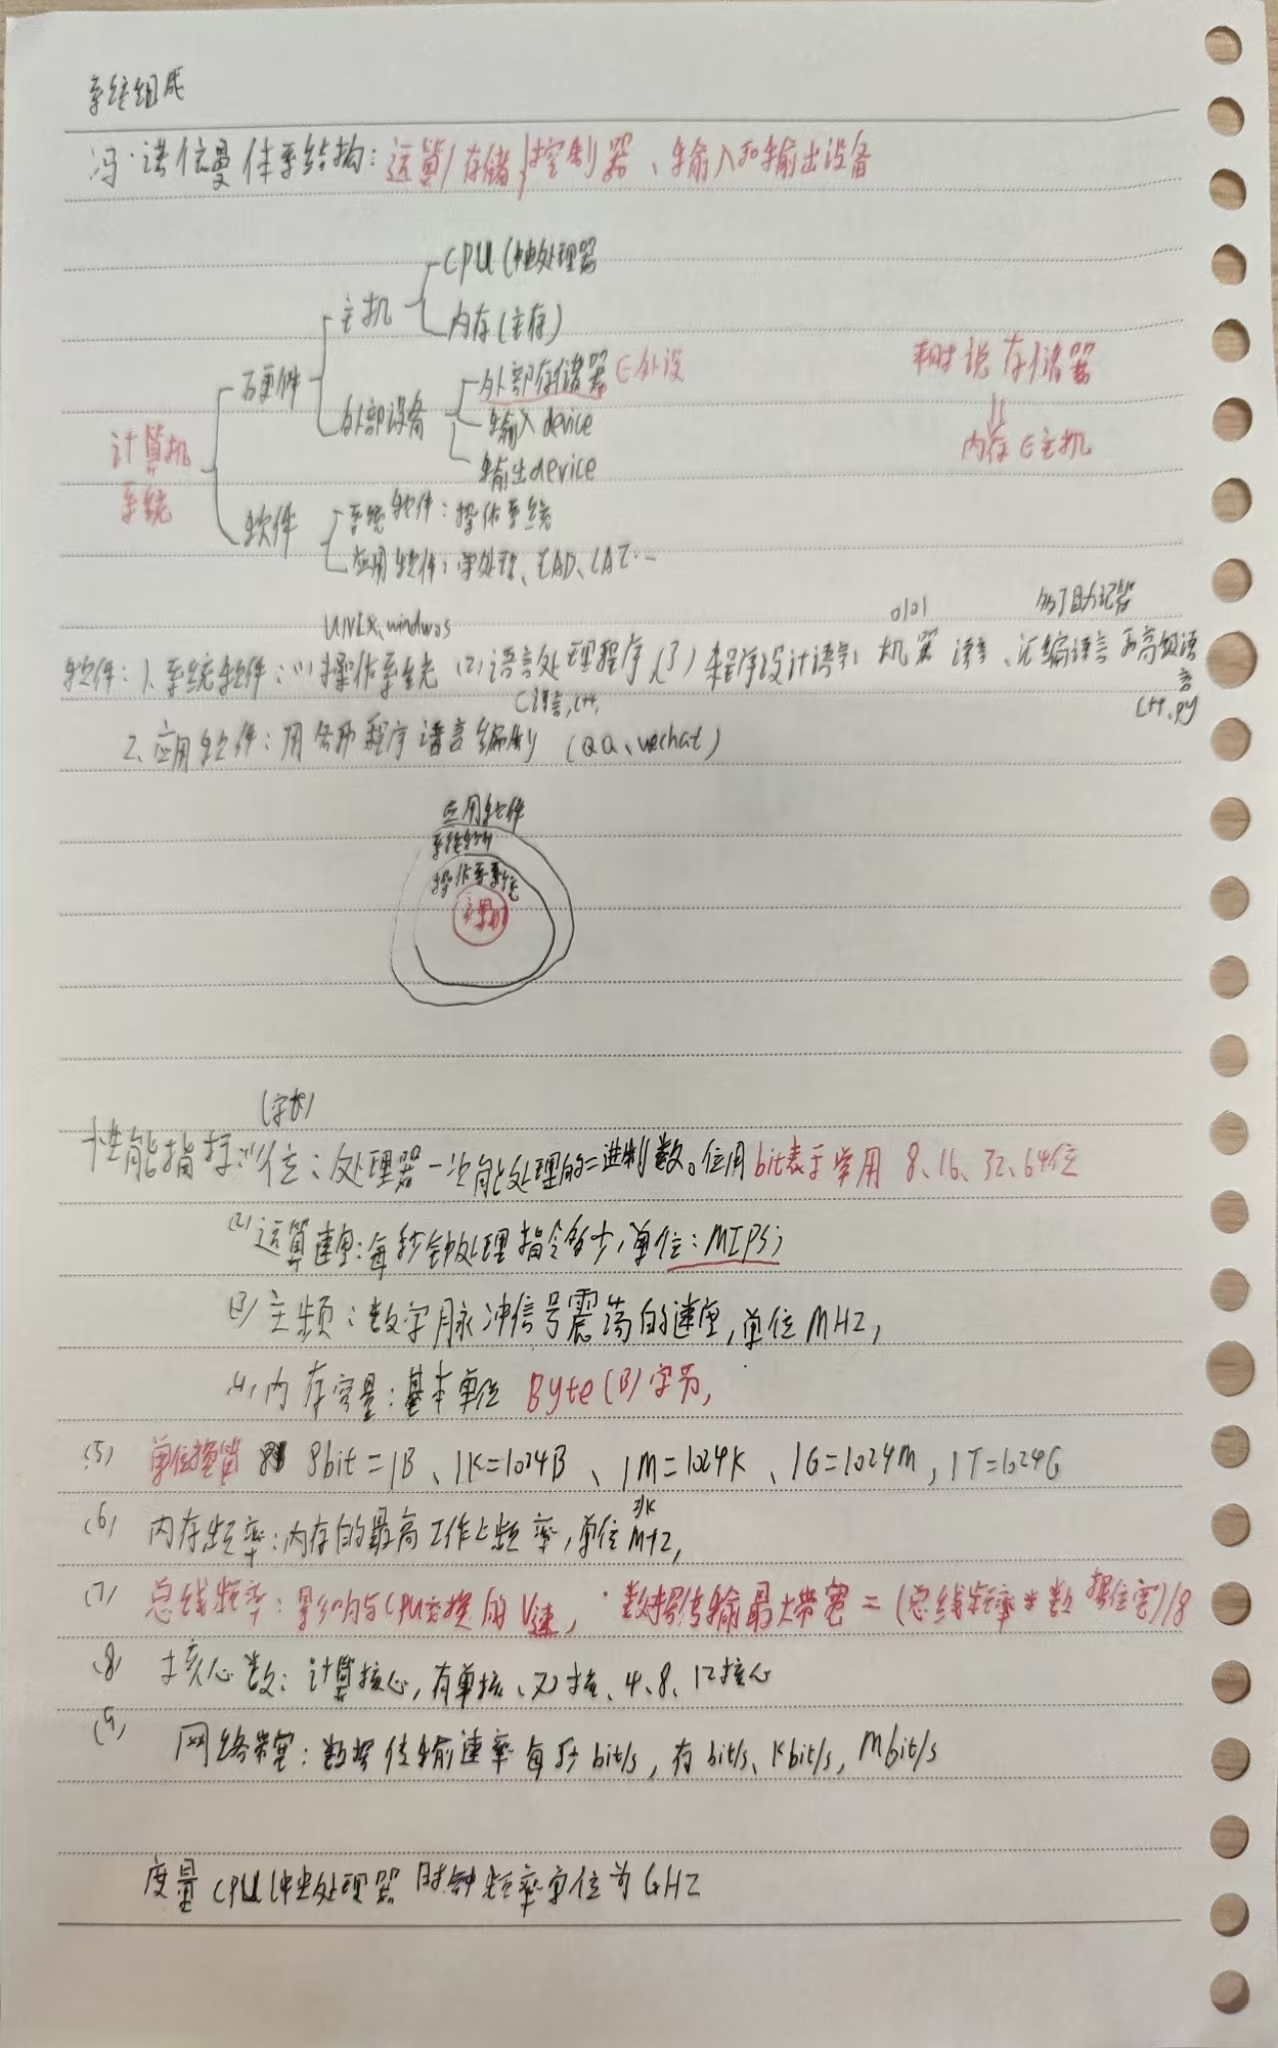 系统组成
冯·诺依曼体系结构：运算/存储/控制器、输入和输出设备
CPU(中央处理器
主机
内存(主存)
硬件
外部存储器 ∈外设
外部设备
输入device
输出device
计算机
系统
软件
系统软件：操作系统
应用软件：字处理、CAD、CAI…
存储器
||
内存∈主机
UNIX、windwos
0101
助记符
软件：1、系统软件：(1)操作系统 (2)语言处理程序 (3)程序设计语言：机器语言、汇编语言和高级语
言
C语言,C++,
C++、py
2、应用软件：用各种程序语言编制 (QQ、wechat)
应用软件
系统软件
操作系统
(字长)
性能指标：(1)位：处理器一次能处理的二进制数。位用bit表示常用 8、16、32、64位
(2)运算速度：每秒钟处理指令多少,单位：MIPS；
(3)主频：数字脉冲信号震荡的速度,单位MHZ,
(4)内存容量：基本单位 Byte(B)字节,
(5) 单位换算 8bit=1B、1K=1024B、1M=1024K、1G=1024M,1T=1024G
(6) 内存频率：内存的最高工作频率,单位MHZ,
(7) 总线频率：影响与CPU交换的V速, 数据传输最大带宽=(总线频率*数据位宽)/8
(8) 核心数：计算核心,有单核、双核、4、8、12核心
(9) 网络带宽：数据传输速率每秒bit/s,有bit/s、Kbit/s,Mbit/s
度量CPU(中央处理器 时钟频率单位为GHZ